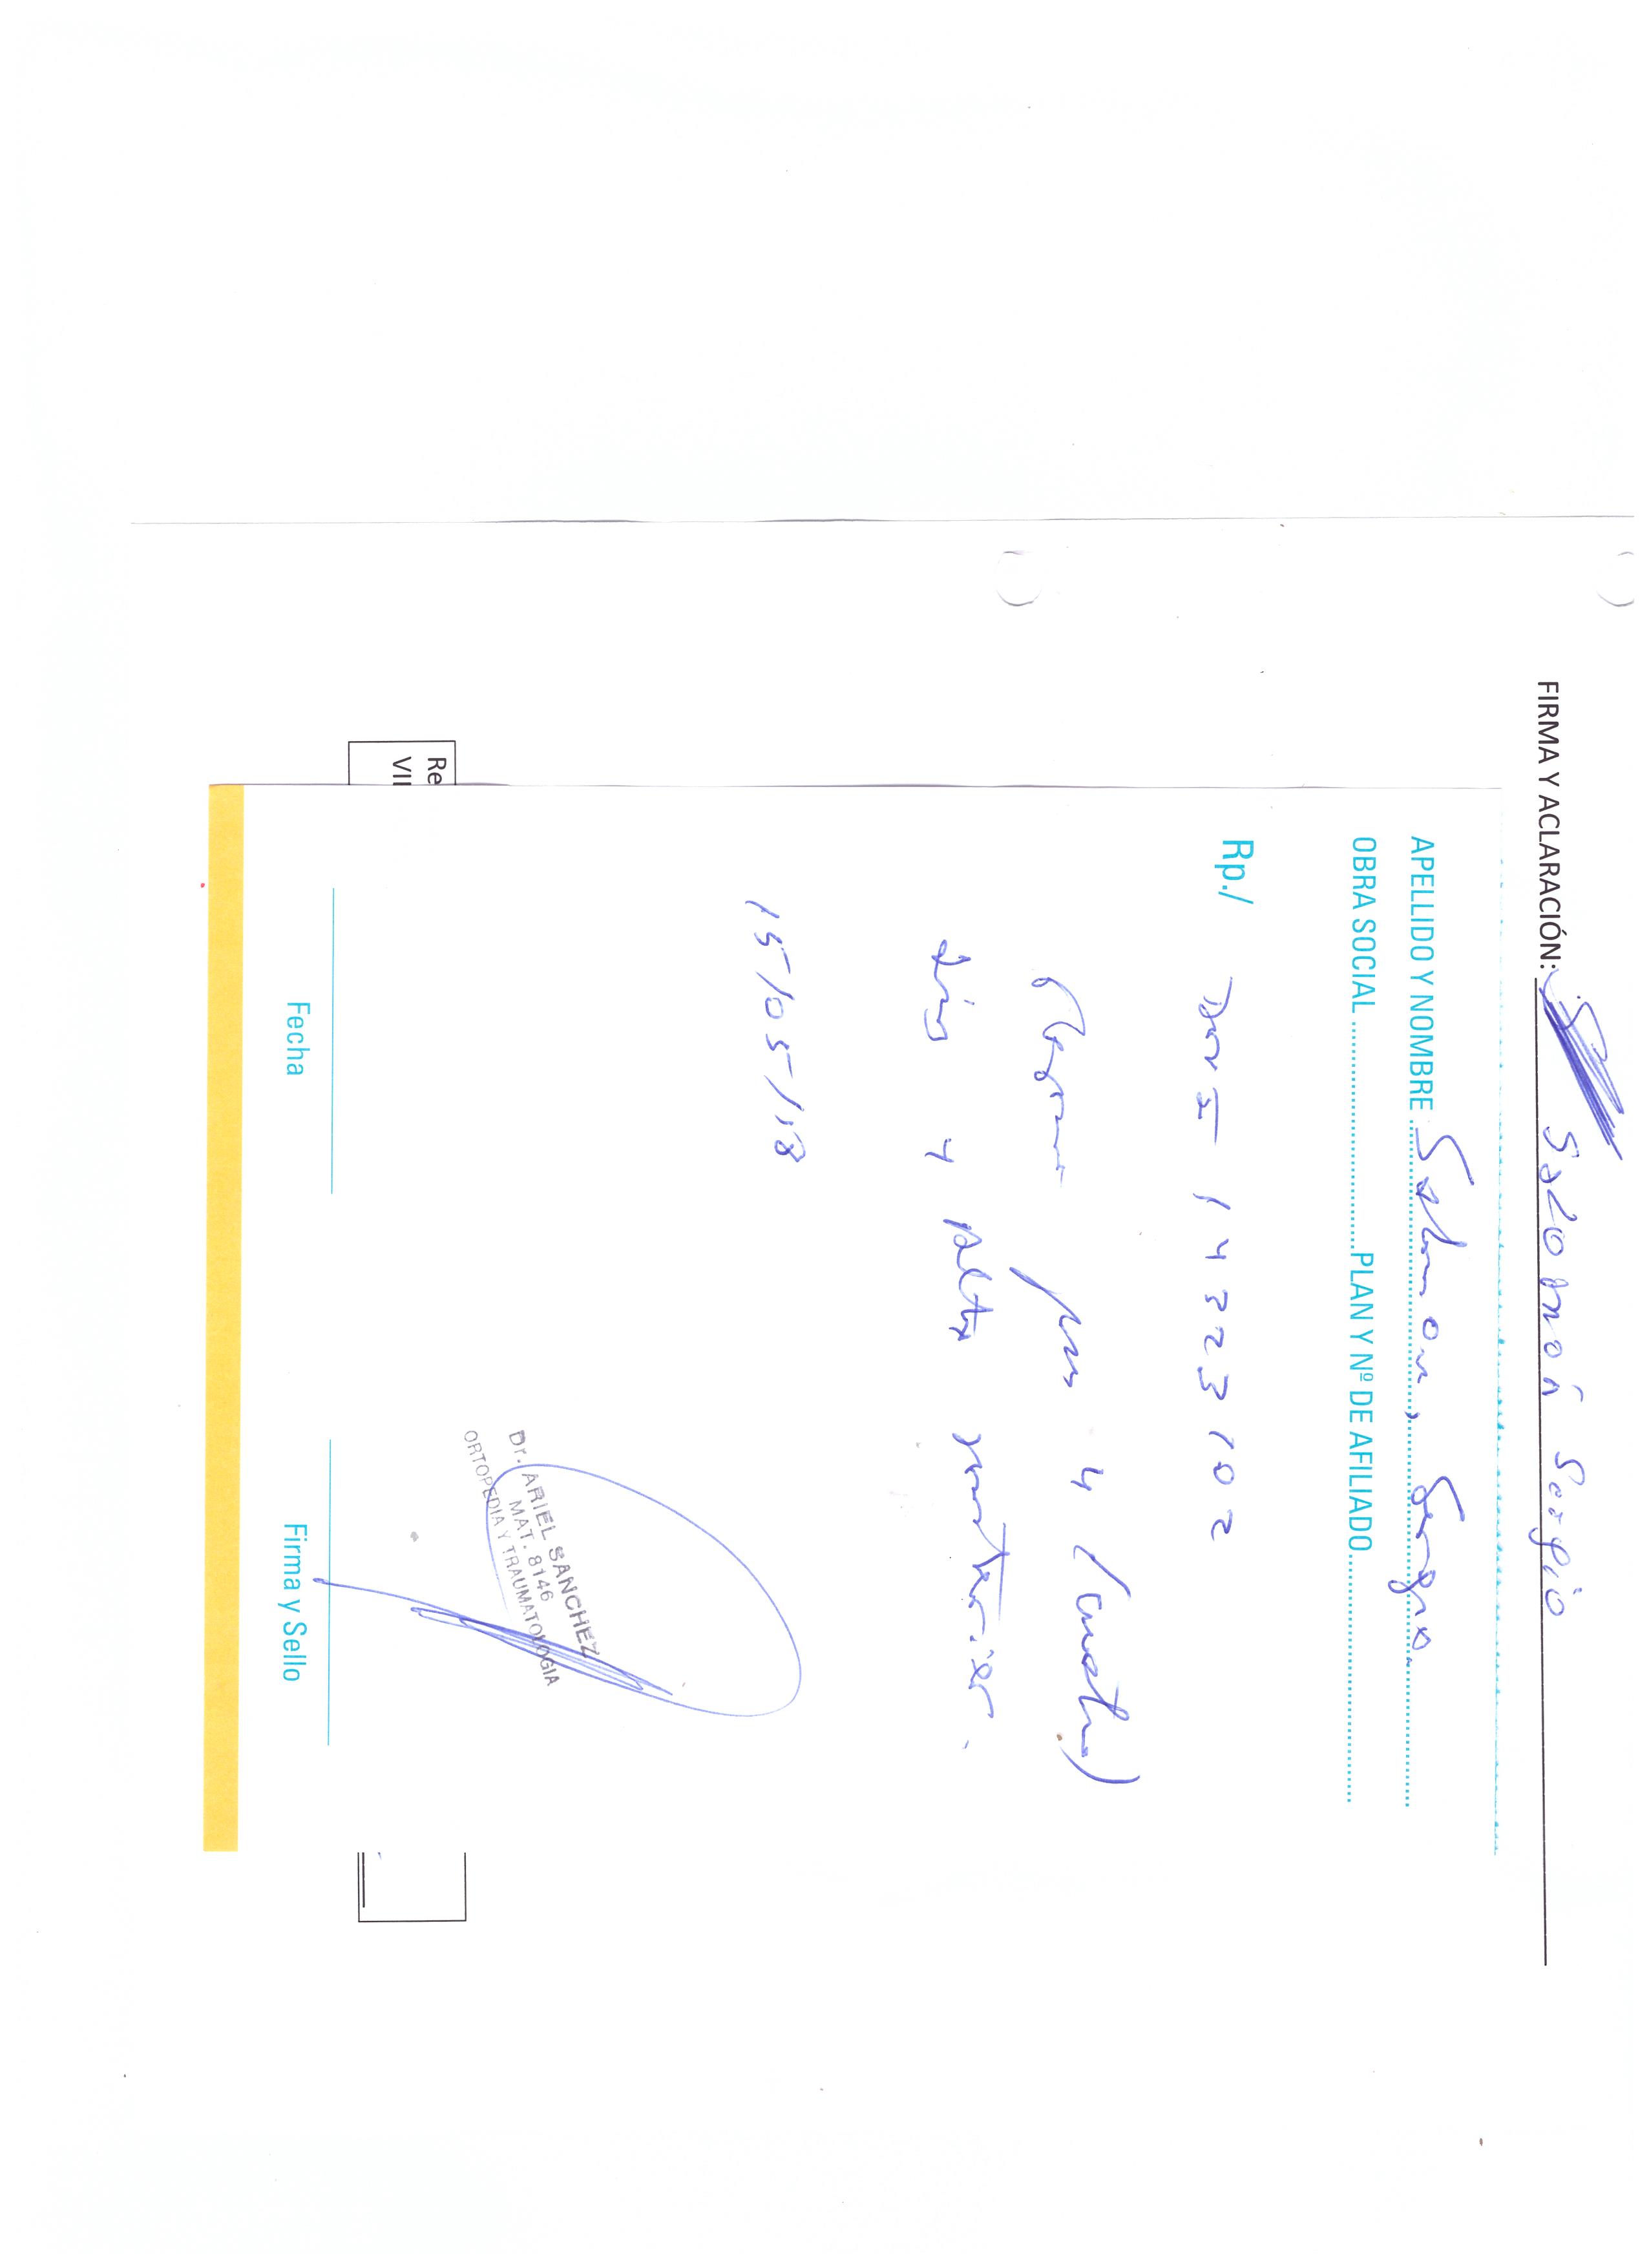 FIRMA Y ACLARACIÓN: Salomon Sergio
APELLIDO Y NOMBRE Salomon, Sergio.
OBRA SOCIAL PLAN Y Nº DE AFILIADO
Rp./
14323102
Reposo por 4 (cuatro)
días y alta posterior.
15/05/18
Dr. ARIEL SANCHEZ
MAT. 8146
ORTOPEDIA Y TRAUMATOLOGIA
Fecha Firma y Sello
Re
VII